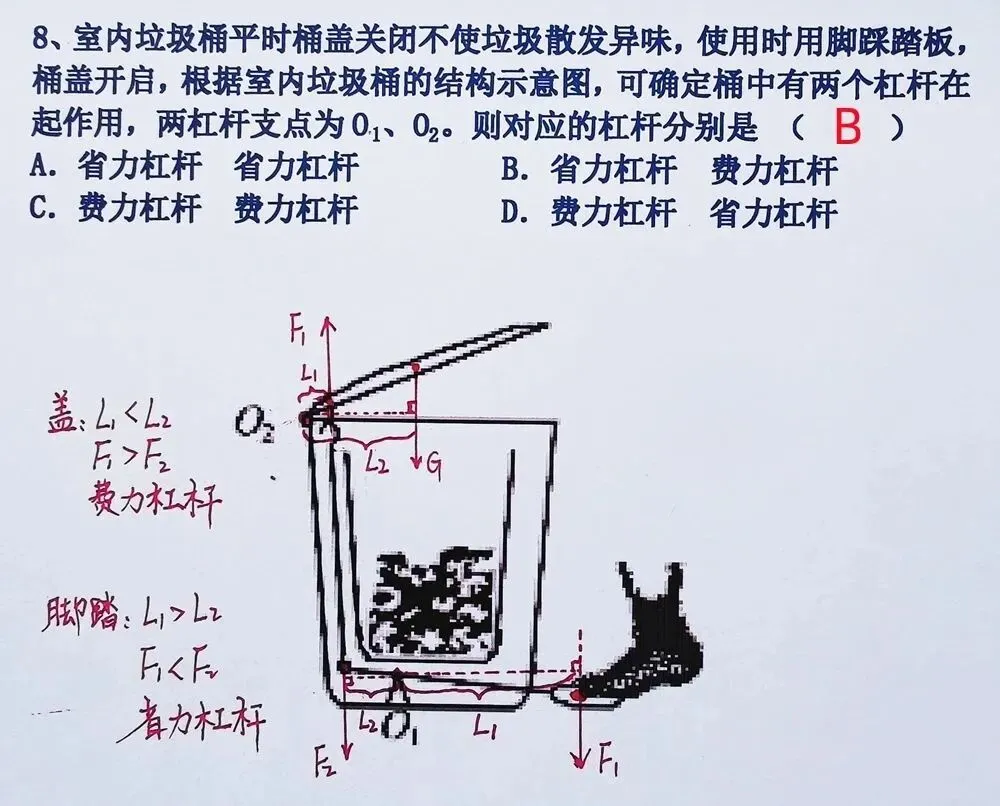 8、室内垃圾桶平时桶盖关闭不使垃圾散发异味，使用时用脚踩踏板，
桶盖开启，根据室内垃圾桶的结构示意图，可确定桶中有两个杠杆在
起作用，两杠杆支点为O₁、O₂。则对应的杠杆分别是 （ B ）
A．省力杠杆 省力杠杆 B．省力杠杆 费力杠杆
C．费力杠杆 费力杠杆 D．费力杠杆 省力杠杆
F₁
L₁
O₂
L₂
G
盖：L₁<L₂
F₁>F₂
费力杠杆
脚踏：L₁>L₂
F₁<F₂
省力杠杆
L₂
O₁
L₁
F₂
F₁